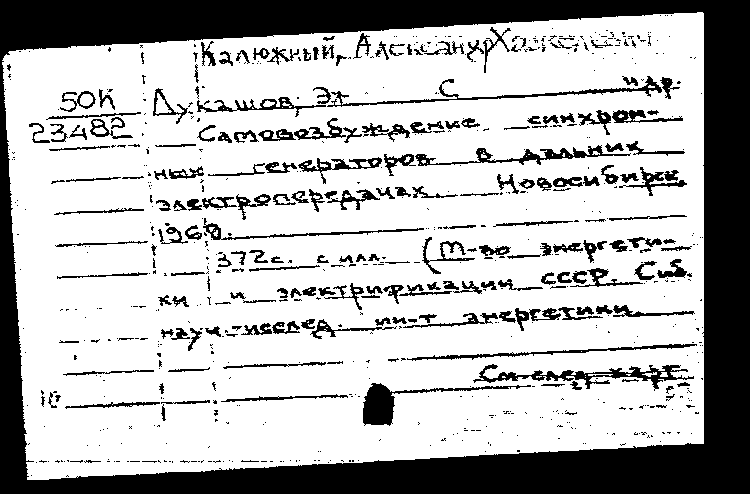 Калюжный, Александр Хаскелевич
50К Лукашов, Эж С и др.
23482 Самовозбуждение синхрон-
ных генераторов в дальних
электропередачах. Новосибирск,
1960.
372 с. с илл. (М-во энергети-
ки и электрификации СССР. Сиб.
науч.-исслед. ин-т энергетики.
См. след. карт
10